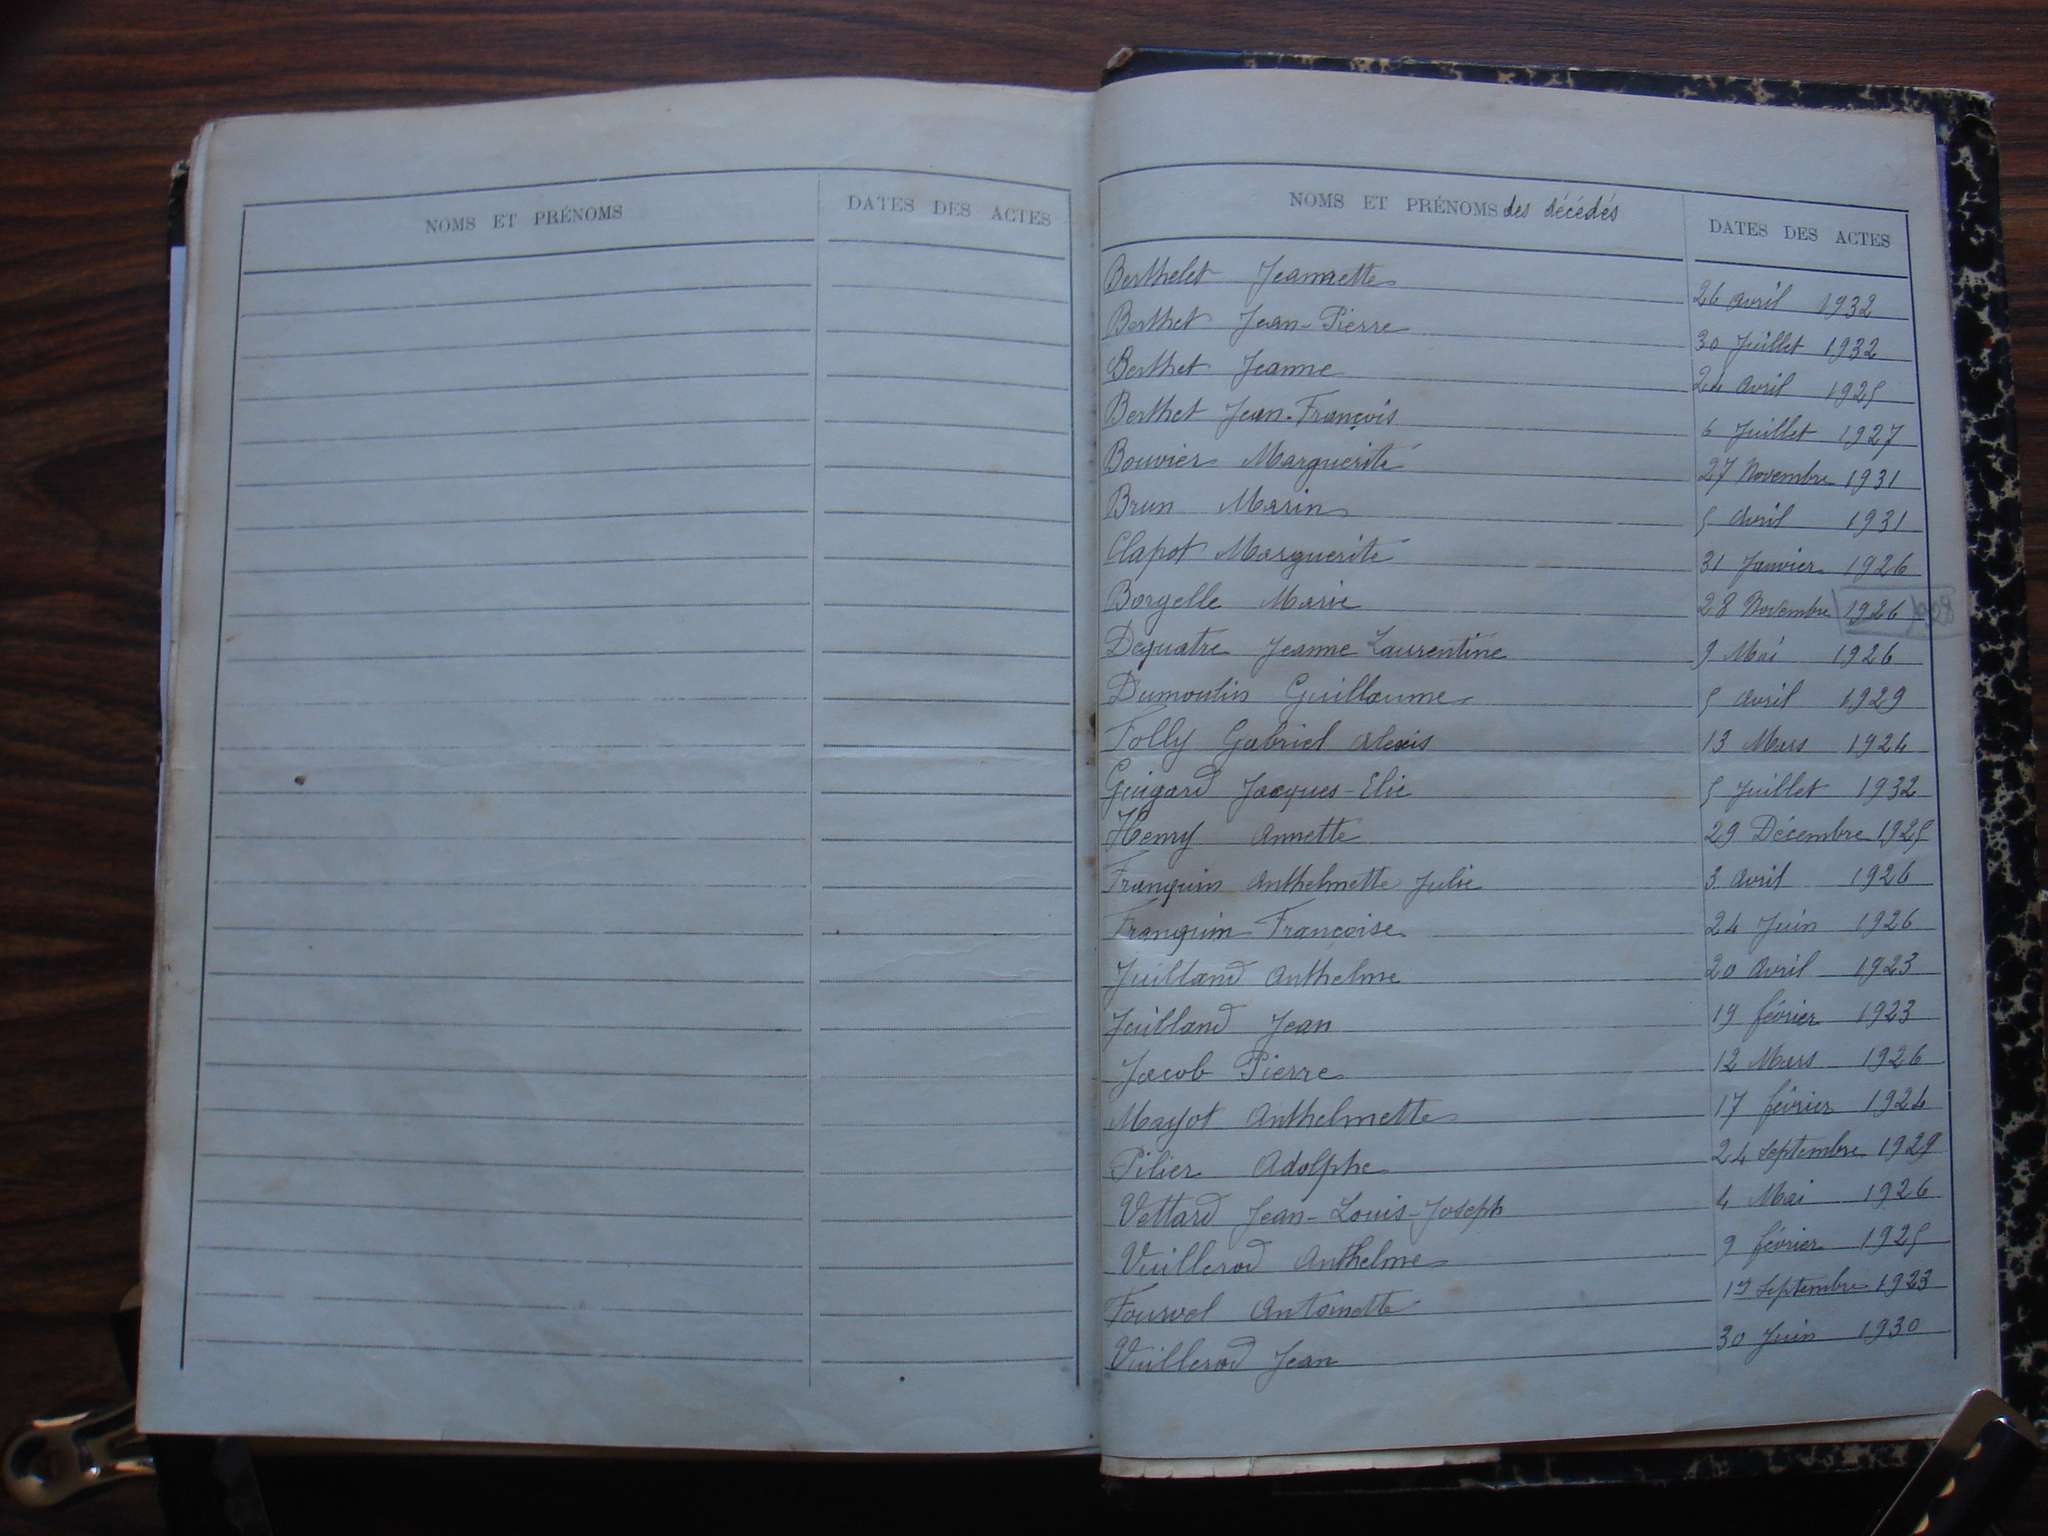 NOMS ET PRÉNOMS DATES DES ACTES
NOMS ET PRÉNOMS des décédés DATES DES ACTES
Berthelet Jeannette 26 avril 1932
Berthet Jean-Pierre 30 Juillet 1932
Berthet Jeanne 24 avril 1925
Berthet Jean-François 6 Juillet 1927
Bouvier Marguerite 27 Novembre 1931
Brun Marin 5 avril 1931
Clapot Marguerite 31 Janvier 1926
Borgelle Marie 28 Novembre 1926 1928
Dequatre Jeanne Laurentine 9 Mai 1926
Dumoulin Guillaume 5 avril 1929
Folly Gabriel Alexis 13 Mars 1924
Guigard Jacques-Elie 5 Juillet 1932
Henry Annette 29 Décembre 1925
Franquin Anthelmette Julie 3 avril 1926
Franquin Françoise 24 Juin 1926
Juilland Anthelme 20 avril 1923
Juilland Jean 19 février 1923
Jacob Pierre 12 Mars 1926
Mayot Anthelmette 17 février 1924
Pilier Adolphe 24 septembre 1929
Vettard Jean-Louis-Joseph 4 Mai 1926
Vuillerod Anthelme 9 février 1925
Fourvel Antoinette 1er septembre 1923
Vuillerod Jean 30 Juin 1930